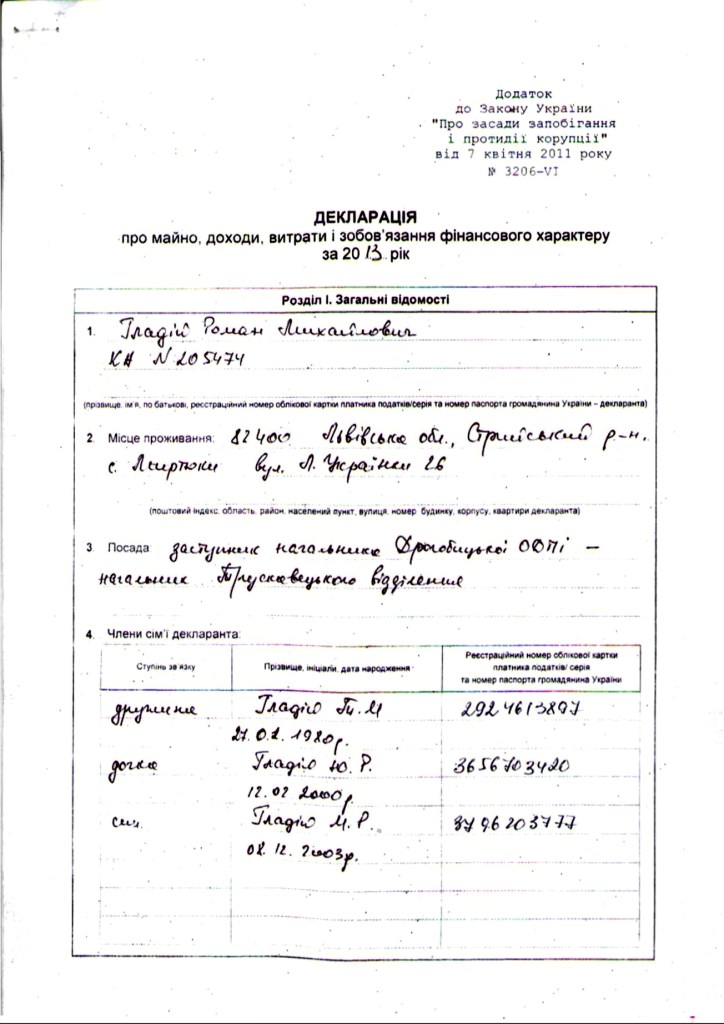 Додаток
до Закону України
"Про засади запобігання
і протидії корупції"
від 7 квітня 2011 року
№ 3206-VI
ДЕКЛАРАЦІЯ
про майно, доходи, витрати і зобов'язання фінансового характеру
за 2013 рік
Розділ І. Загальні відомості
1. Гладій Роман Михайлович
КА N 205474
(прізвище, ім'я, по батькові, реєстраційний номер облікової картки платника податків/серія та номер паспорта громадянина України – декларанта)
2. Місце проживання: 82400 Львівська обл., Стрийський р-н.
с. вул. Л. Українки 26
(поштовий індекс, область, район, населений пункт, вулиця, номер будинку, корпусу, квартири декларанта)
3. Посада: заступник начальника Дрогобицької ОДПІ –
начальник Трускавецького відділення
4. Члени сім'ї декларанта:
Ступінь зв'язку Прізвище, ініціали, дата народження Реєстраційний номер облікової картки
платника податків/ серія
та номер паспорта громадянина України
дружина Гладій Т.М 2924613897
27.01.1980р.
дочка Гладій Ю.Р. 3656703420
12.02 2000р
син. Гладій М.Р. 3796203777
08.12.2003р.